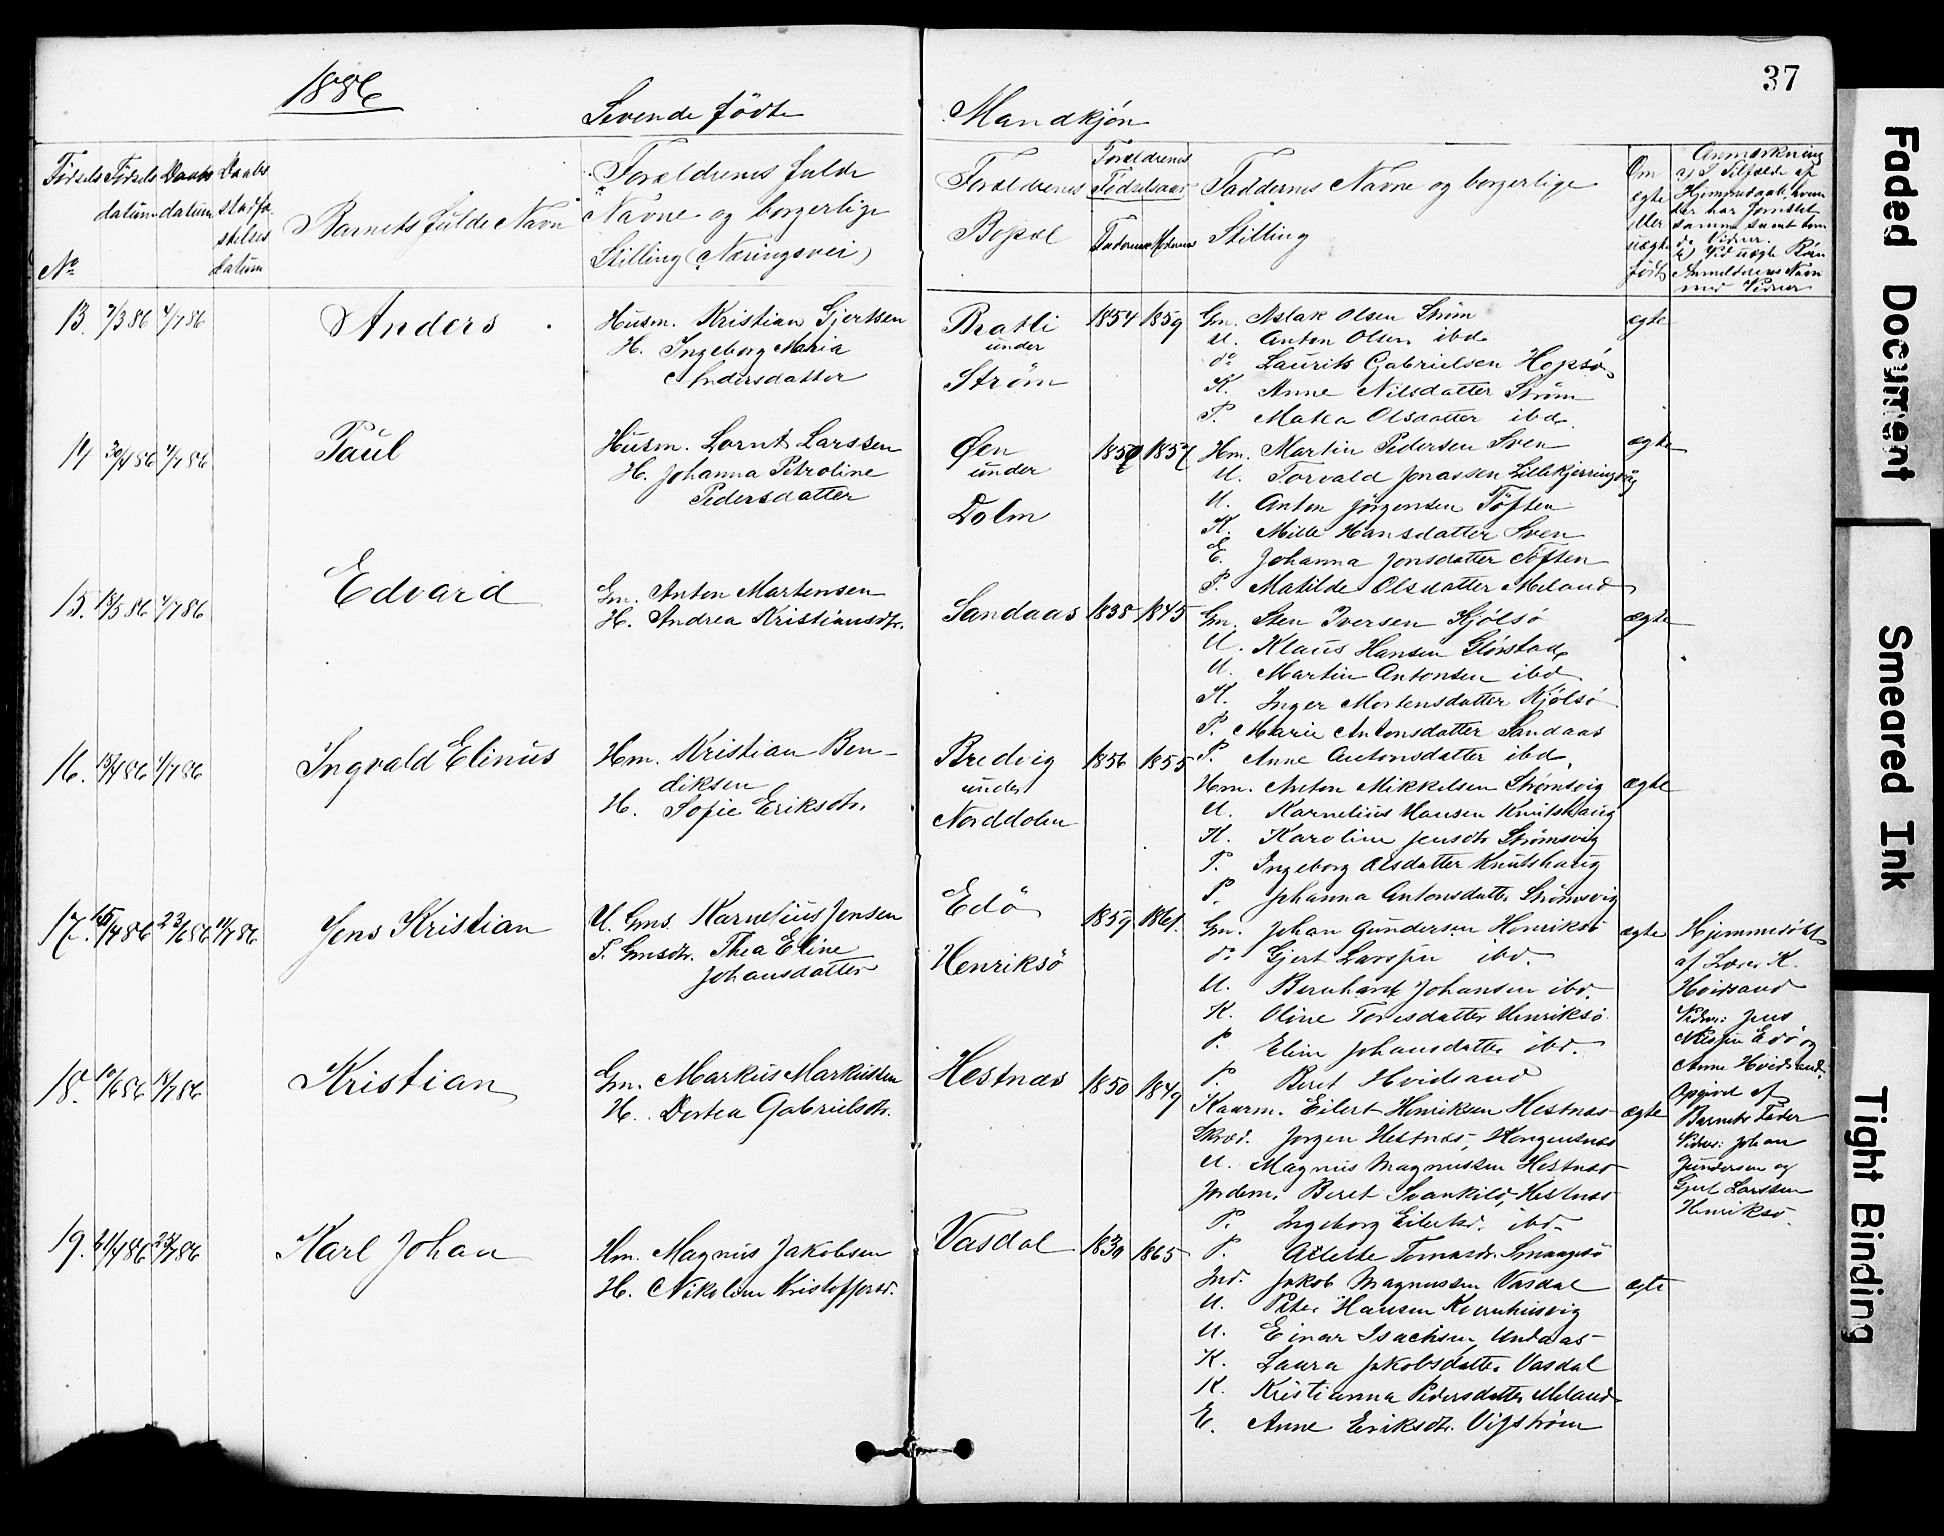 1886
Levende födte
Mandkjön
37
Fødsels Fødsels Daabs Daabs
datum datum stadfæ
stelses
datum
No
Barnets fulde Navn
Forældrenes fulde
Navne og borgerlige
Stilling (Næringsvei)
Forældrenes
Bopæl
Forældrenes
Fødselsaar
Faderens Moderens
Faddernes Navne og borgerlige
Stilling
Om
ægte
eller
uægte
født
Anmærkning
a) I Tilfælde af
Hjemmedaab, hvem
der har forrettet
samme samt hvem
de Vidner.
b) Ved uægte Børn
Anmelderens Navn
med Vidner
13. 7/3 86 4/7 86
Anders
Husm. Kristian Gjertsen
H. Ingeborg Maria
Andersdatter
Bratli
under
Strøm
1854 1859
Gm. Aslak Olsen Strøm
U. Anton Olsen ibd
do Laurits Gabrielsen Hopsö
K. Anne Nilsdatter Strøm
P. Matea Olsdatter ibd.
ægte
14 30/4 86 4/7 86
Paul
Husm. Lornt Larssen
H. Johanna Petroline
Pedersdatter
Øen
under
Dolm
1857
Hm. Martin Pedersen Sven
U. Torvald Jonassen Lillekjerringvåg
U. Anton Jørgensen Töften
K. Mille Hansdatter Sven
E. Johanna Jonsdatter Töften
P. Matilde Olsdatter Meland
ægte
15. 18/5 86 4/7 86
Edvard
Gm. Anton Martensen
H. Andrea Kristiansdtr.
Sandaas
1838 1845
Gm. Sten Iversen Kjölsö
U. Klaus Hansen Glørstad
U. Martin Antonsen ibd
K. Inger Mortensdatter Kjölsö
P. Marie Antonsdatter Sandaas
P. Anne Antonsdatter ibd.
ægte
16. 15/4 86 4/7 86
Ingvald Elinus
Hm. Kristian Ben-
diksen
H. Sofie Eriksdtr.
Bredvig
under
Norddolm
1856 1855
Hm. Anton Mikkelsen Strömsvig
U. Karnelius Hansen Knutshaug
K. Karoline Jensdtr Strömsvig
P. Ingeborg Olsdatter Knutshaug
P. Johanna Antonsdatter Strömsvig
ægte
17. 15/4 86 23/6 86 11/7 86
Jens Kristian
U. Gms. Karnelius Jensen
P. Gmsdtr. Thea Eline
Johansdatter
Edö
Henriksö
1859 1861.
Gm. Johan Gundersen Henriksö
do Gjert Larssen ibd.
U. Bernhard Johansen ibd.
K. Oline Toresdatter Henriksö
P. Elin Johansdatter ibd.
P. Beret Hvidsand
ægte
Hjemmedöbt
af Lærer K.
Hvidsand
Vidner: Jens
Edö og
Anne Hvidsand.
Opgivet af
Barnets Fader
Vidner: Johan
Gundersen og
Gjert Larssen
Henriksö.
18. 10/6 86 18/7 86
Kristian
Gm. Markus Markussen
H. Dortea Gabrielsdtr.
Hestnæs
1850 1849
Kaarm. Eilert Henriksen Hestnæs
Skræd. Jørgen Hestnæs,
U. Magnus Magnussen Hestnæs
Jordem. Beret Svankild, Hestnæs
P. Ingeborg Eilertsd. ibd.
P. Alette Tomasdr. Smaagesö
ægte
19. 21/4 86 25/7 86
Karl Johan
Hm. Magnus Jakobsen
H. Nikoline Kristoffersd.
Vasdal
1830 1865
Ind. Jakob Magnussen Vasdal
U. Peter Hansen Kvernhusvig
U. Einar Isachsen Undaas
K. Laura Jakobsdatter Vasdal
K. Kristianna Pedersdatter Meland
E. Anne Eriksdtr. Vigström
ægte
Faded Document
Smeared Ink
Tight Binding